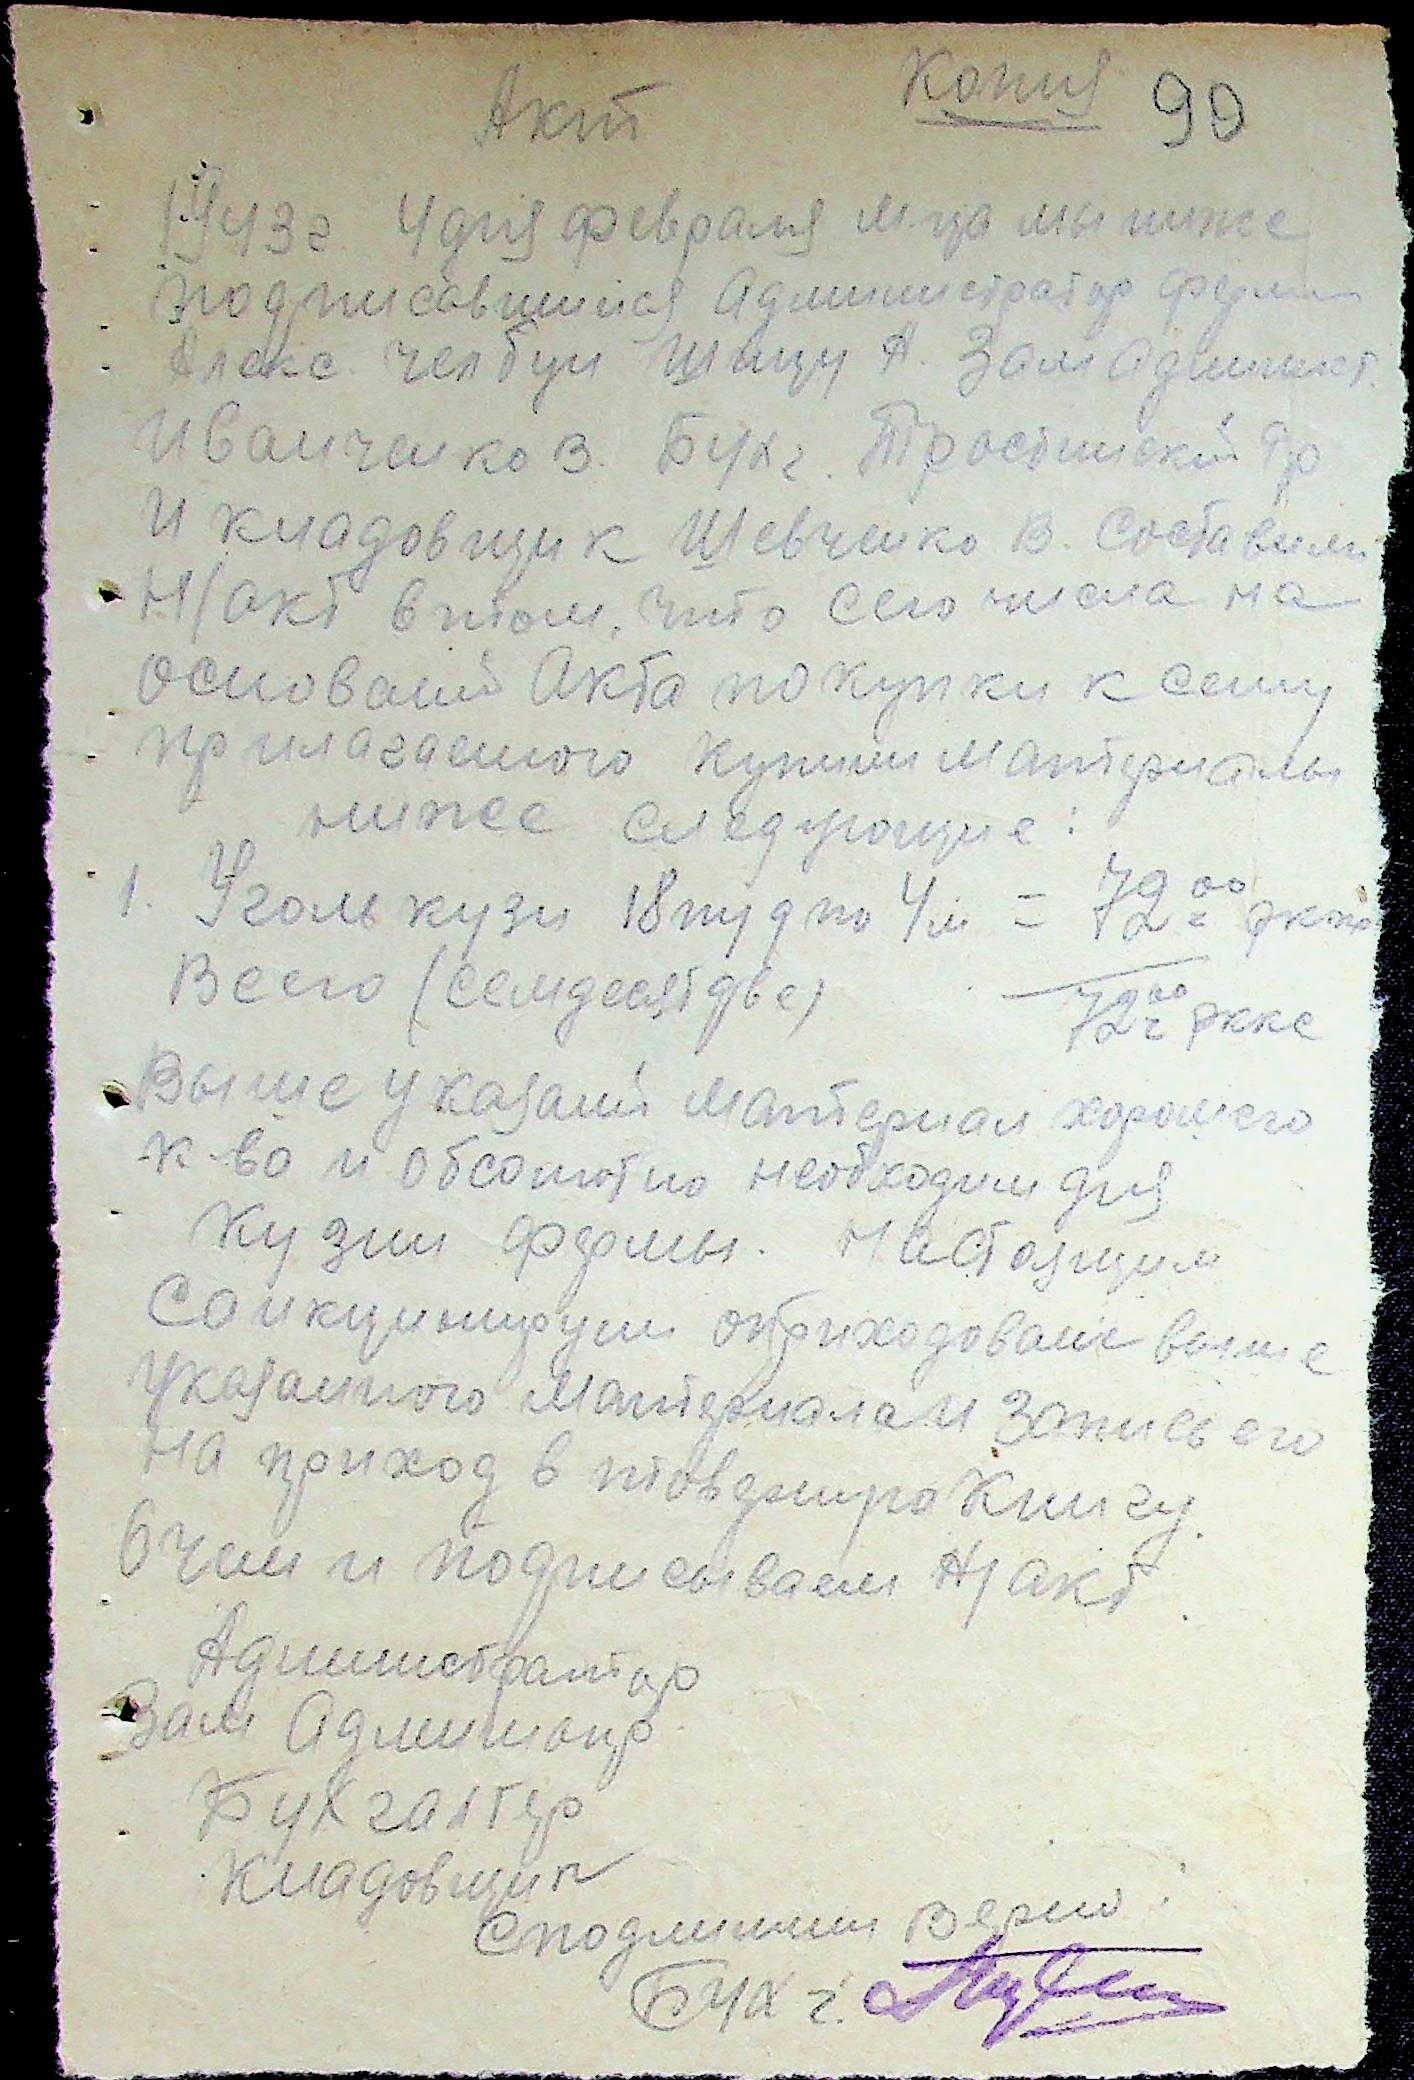 Копия 90
Акт
1943 г 4 дня февраля м-ца мы ниже
подписавшийся Администратор фермы
Алекс челбун А. Зам админист.
Иванченко В. Бухг. Тростинский Гр
и кладовщик Шевченко В. Составили
н/акт в том, что сего числа на
оснований Акта покупки к сему
прилагаемого купили материалы
ниже следующие:
1. Уголь кузн 18 пуд по 4 м = 72 00
Всего (семдесят две) 72 00
Выше указаний материал хорошего
к-ва и обсолютно необходим для
кузни фермы. Настоящим
Санкцинируем оприходование выше
указанного материала и запись его
на приход в Книгу.
О чем и подписываем н/акт.
Администратор
Зам
Бухгалтер
Кладовщик
С подлинним верно:
Бухг.